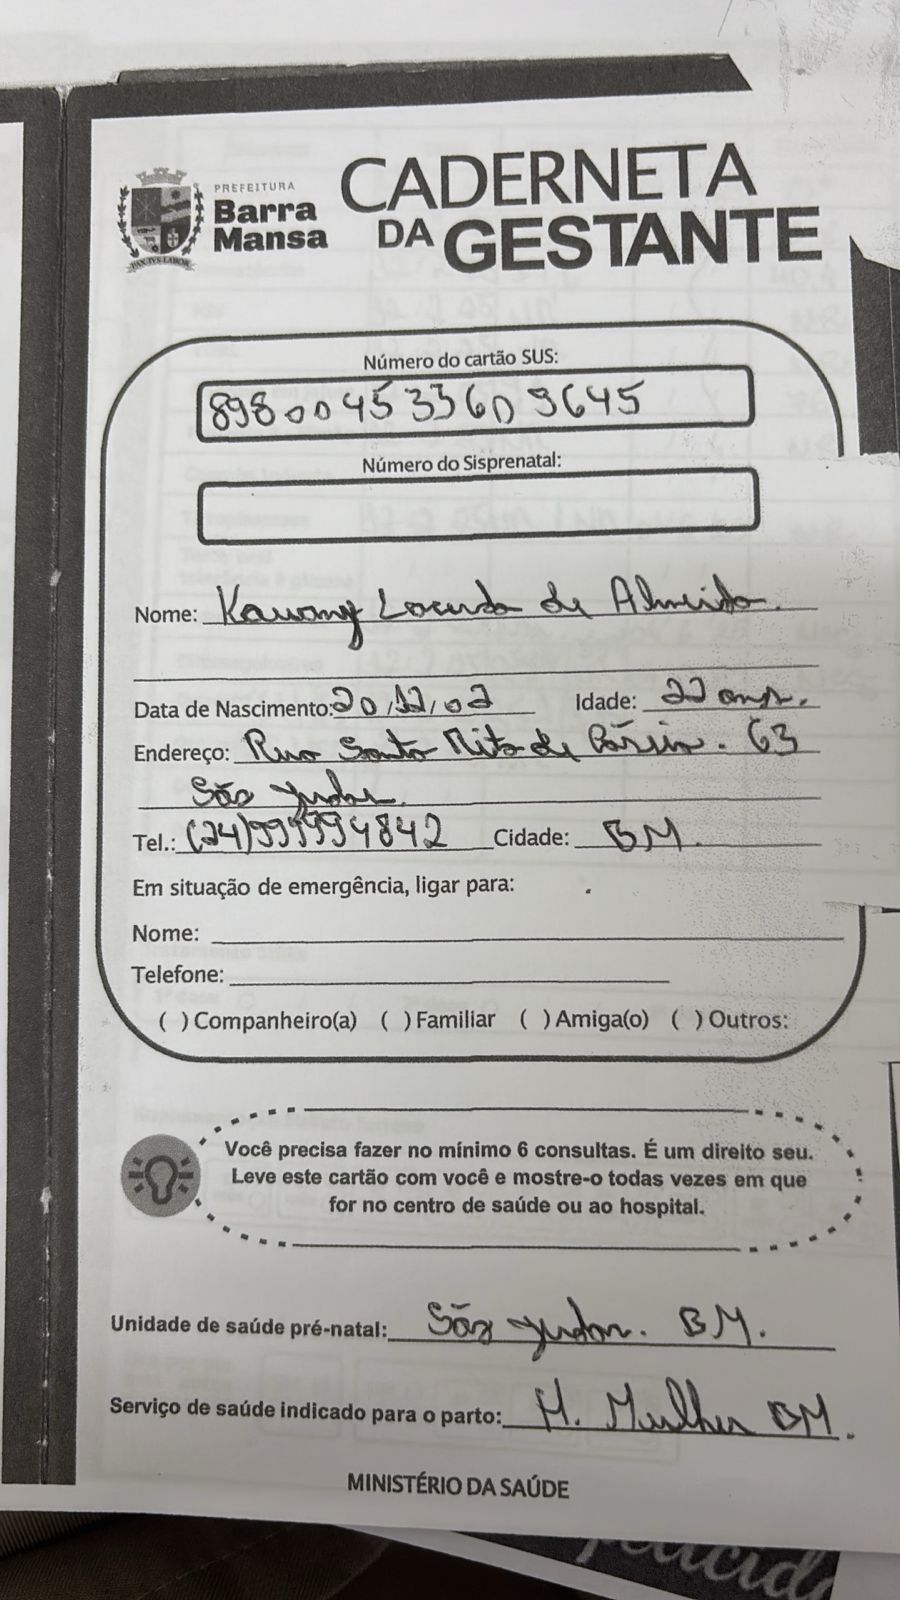 PREFEITURA
Barra
Mansa
PAX IVS LABOR
CADERNETA
DA GESTANTE
Número do cartão SUS:
898 0045 3360 9645
Número do Sisprenatal:
Nome: Kauany Lacerda de Almeida.
Data de Nascimento: 20/12/02 Idade: 22 anos.
Endereço: Rua Santa Rita de Cássia. 63
São Judas.
Tel.: (24)999994842 Cidade: BM.
Em situação de emergência, ligar para:
Nome:
Telefone:
( ) Companheiro(a) ( ) Familiar ( ) Amiga(o) ( ) Outros:
Você precisa fazer no mínimo 6 consultas. É um direito seu.
Leve este cartão com você e mostre-o todas vezes em que
for no centro de saúde ou ao hospital.
Unidade de saúde pré-natal: São Judas. BM.
Serviço de saúde indicado para o parto: H. Mulher BM.
MINISTÉRIO DA SAÚDE